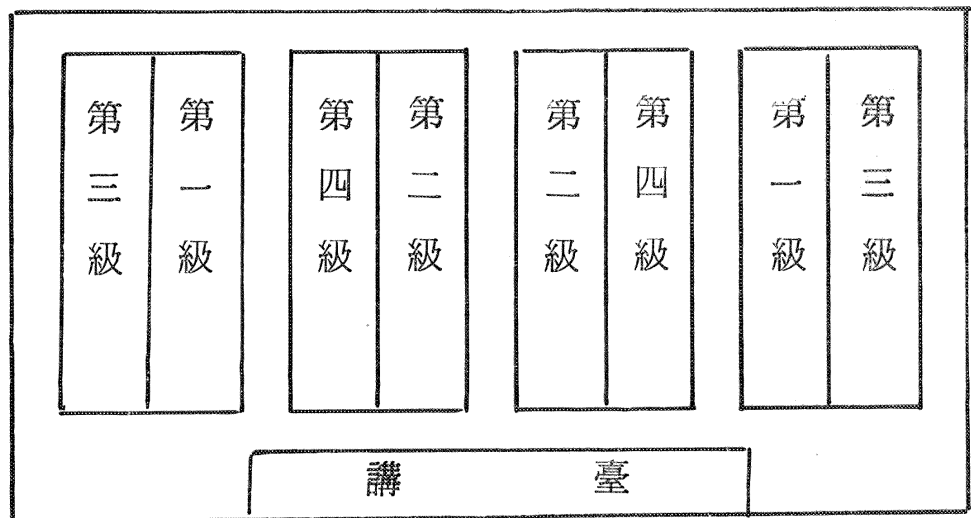 第三級
第一級
第四級
第二級
第二級
第四級
第一級
第三級
講臺